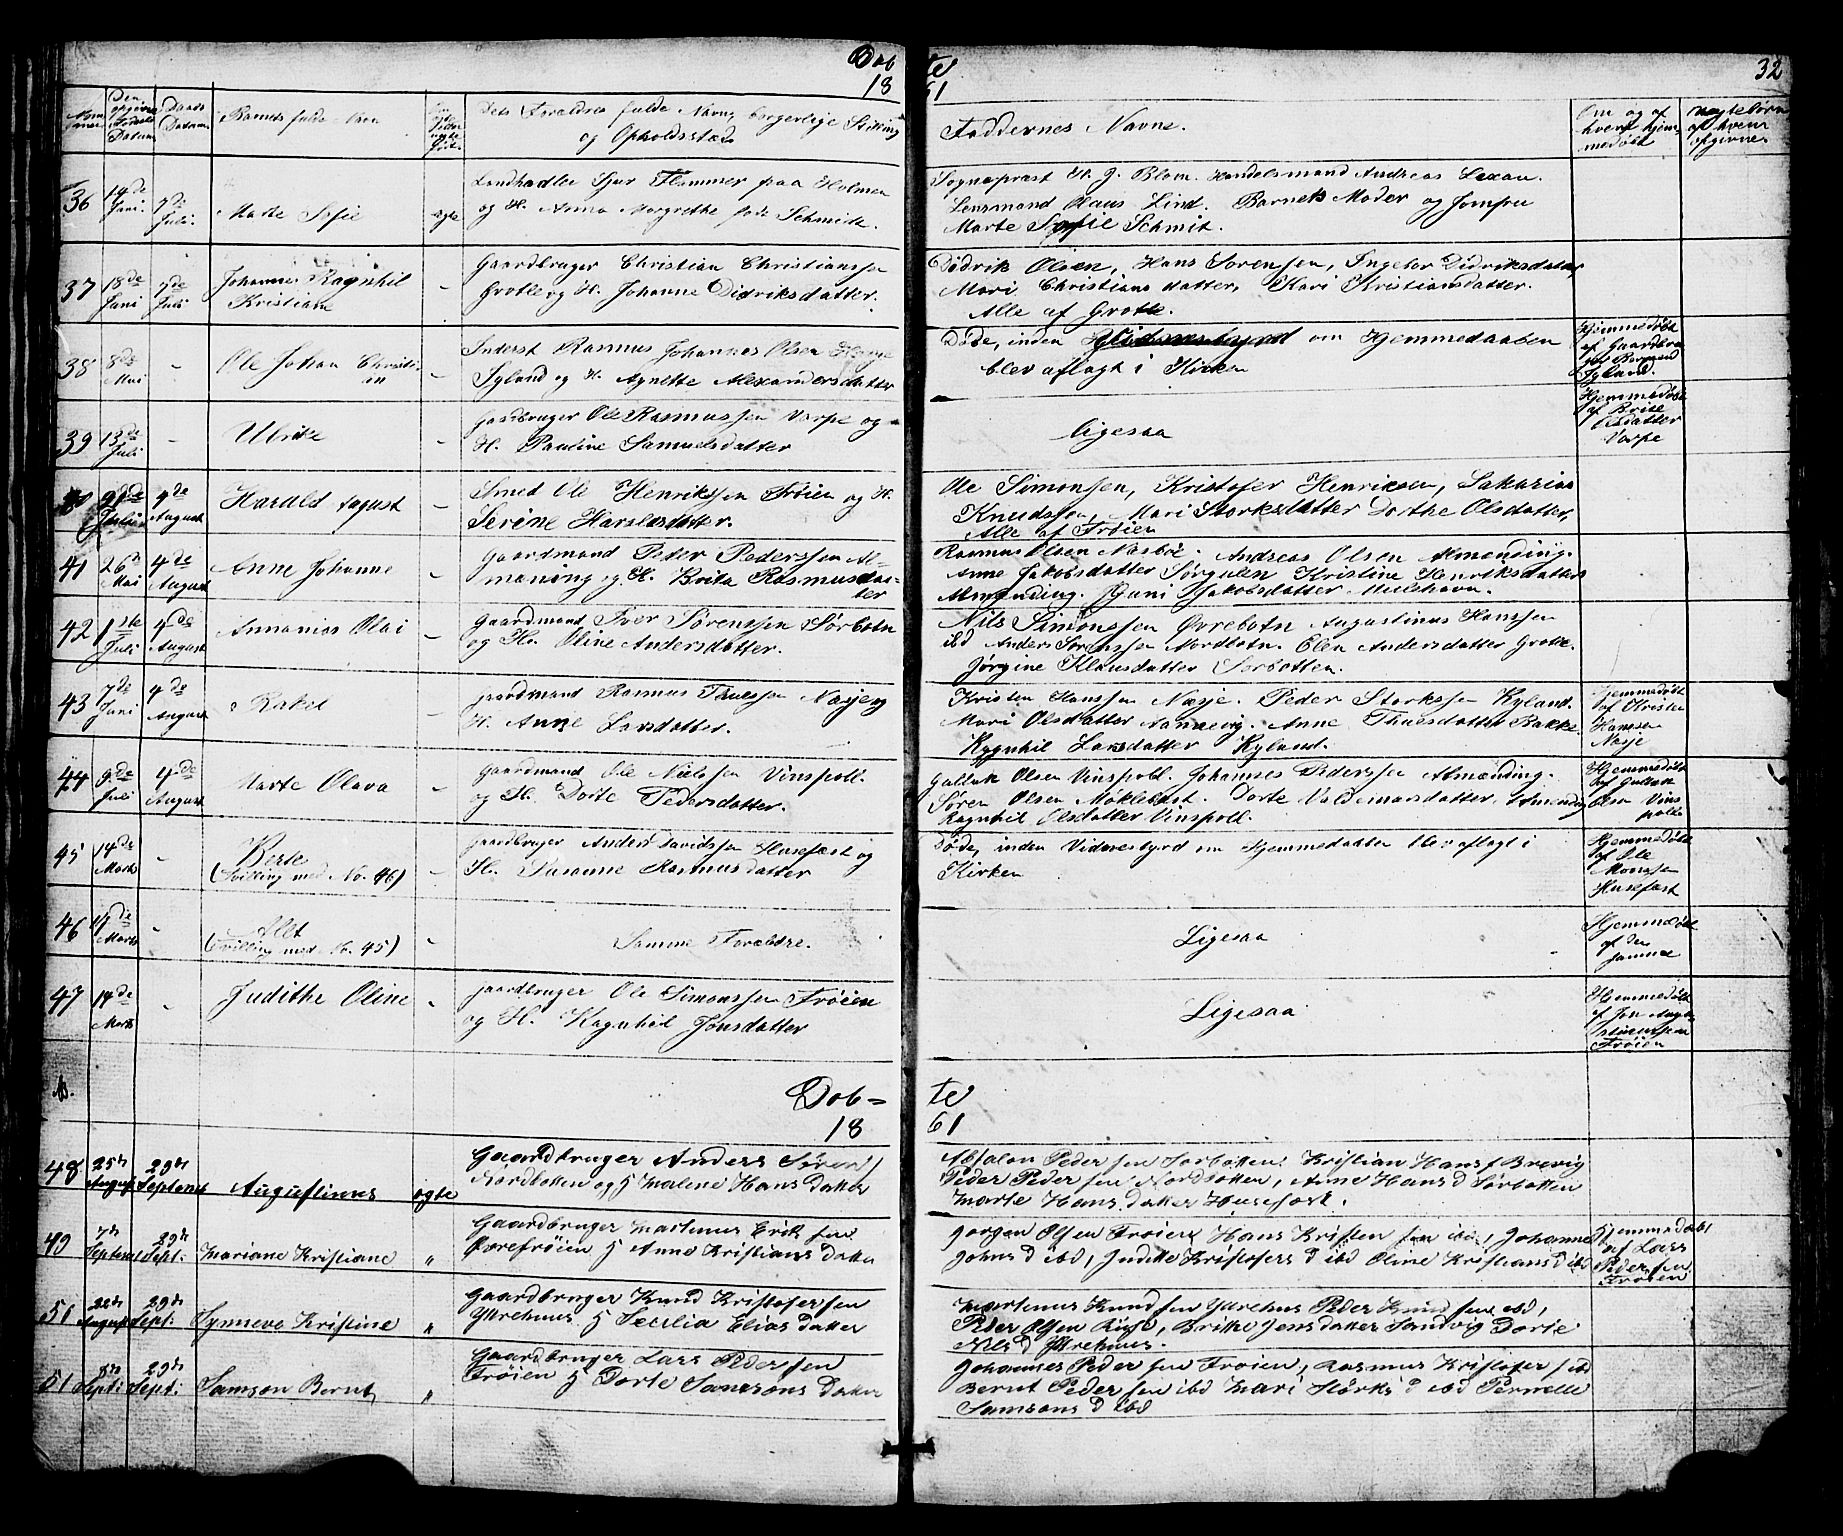 Døb te
18 61
32
Barnets fulde Navn
Dets Foreldres fulde Navn, borgerlige Stilling
og Opholdssted
Faddernes Navne.
Om og af
hvem hjem
medøbt
36 14de Juni 7de Juli. Marte Sofie ægte
Landhandler Sjur Flammer paa Holmen
og H. Anna Margrethe født Schmidt.
Sogneprest H. J. Blom. Handelsmand Andreas
Lensmand Claus Lind. Barnets Moder og Jomfru
Marte Sofie Schmit.
37 18de Juni 7de Juli Johannes Ragnhil
Kristiane
Gaardbruger Christian Christianssen
Grotle og H. Johanne Didriksdatter.
Didrik Olsen, Hans Sørensen, Ingebor Didriksdatter
Mari Christians datter, Kari Kristiansdatter.
Alle af Grotle.
38 8de Mai - Ole Johan Christi
an
Inderst Rasmus Johannes Olsen
Igland og H. Agnette Alexandersdatter
Døde, inden om Hjemmedaaben
blev aflagt i Kirken
Hjemmedøbt
af Gaardbru
Rasmus
Igland.
39 13de Juli - Ulrike
Gaardbruger Ole Rasmussen Varpe og
H. Pauline Samuelsdatter
Ligesaa
Hjemmedøbt
af Brite
Olsdatter
Varpe
4de August Harald August
Smed Ole Henrikssen Frøien og H.
Serine Haraldsdatter.
Ole Simonsen, Kristofer Henriksen, Sakarias
Knudssen, Mari Storksdatter Dorthe Olsdatter,
Alle af Frøien
41 26de Mai 4de August Anne Johanne
Gaardmand Peter Pederssen Al-
mening og H. Brita Rasmusdat-
ter
Rasmus Olsen Nasbøe. Andreas Olsen Almending.
Anne Jakobsdatter Sørgulen Kristine Henriksdatter
Almending. Jakobsdatter Mulehavn.
42 1ste Juli 4de August Annanias Olai
Gaardmand Iver Sørenssen Sørbotn
og H. Oline Andersdatter.
Nils Simonssen Øvrebotn Augustinus Hanssen
ibd Anders Sørenssen Nordbotn. Elen Andersdatter Grotle.
Jørgine Klausdatter Sørbotten.
43 7de Juni 4de August Rakel
Gaardmand Rasmus Thuessen Nasje og
H. Anne Larsdatter.
Kristen Hanssen Nasje. Peder Storkssen Hyland.
Mari Olsdatter Aannevig. Anne Thuesdatter Bakke.
Ragnhil Larsdatter Hyland.
Hjemmedøbt
af Kristen
Hanssen
Nasje
44 9de Juli 4de August Marte Olava
Gaardmand Ole Nielssen Vinspoll.
og H. Dorte Pedersdatter.
Gulluk Olsen Vinspoll. Johannes Pederssen Almending.
Søren Olsen Møklebust. Dorte Valdemarsdatter. Almending
Ragnhil Olsdatter Vinspoll.
Hjemmedøbt
af Gulluk
Olsen Vins
poll
45 14de Marts - Berte
(Tvilling med No. 46)
Gaardbruger Anders Davidssen Husefæst og
H. Susanne Rasmusdatter
Døde, inden Vidnesbyrd om Hjemmedaaben blev aflagt i
Kirken
Hjemmedøbt
af Ole
Monssen
Husefæst
46 14de Marts - Alet
(Tvilling med No. 45)
Samme Forældre.
Ligesaa
Hjemmedøbt
af den
samme
47 14de Marts - Judithe Oline
Gaardbruger Ole Simonssen Frøien
og H. Ragnhil Jonsdatter
Ligesaa
Hjemmedøbt
af Jon
Frøien
Døb= te
18 61
48 25de August 29de September Augustinus ægte
Gaardbruger Anders Søren
Nordbotten og H Malene Hans datter
Absalon Peder sen Sørbotten. Kristian Hans s Brevig
Peder Peder sen Nordbotten, Anne Hans d Sørbotten
Marte Hans datter Husefæst.
49 7de September 29de Sept: Mariane Kristiane "
Gaardbruger Martinus Erik sen
Øvrefrøien H Anne Kristians datter
Jørgen Olsen Frøien Hans Kristen sen ibd, Johanne
Johns d ibd, Judithe Kristofers d ibd Oline Kristians d ibd
Hjemmedøbt
af Lars
Peder sen
Frøien
51 22de August 29de Sept: Synneve Kristine "
Gaardbruger Knud Kristofer sen
Ytrehuus H Cecilia Elias datter
Martinus Knud sen Ytrehus Peder Knud sen ibd,
Peder Olsen Rise, Britte Jens datter Sandvig Dorte
Nils d Ytrehuus.
51 8de Sept: 29de Sept: Samson Bernt "
Gaardbruger Lars Peder sen
Frøien H Dorte Samsons datter
Johannes Peder sen Frøien, Rasmus Kristofer s ibd
Bernt Peder sen ibd Mari Størks d ibd Pernelle
Samsons d ibd